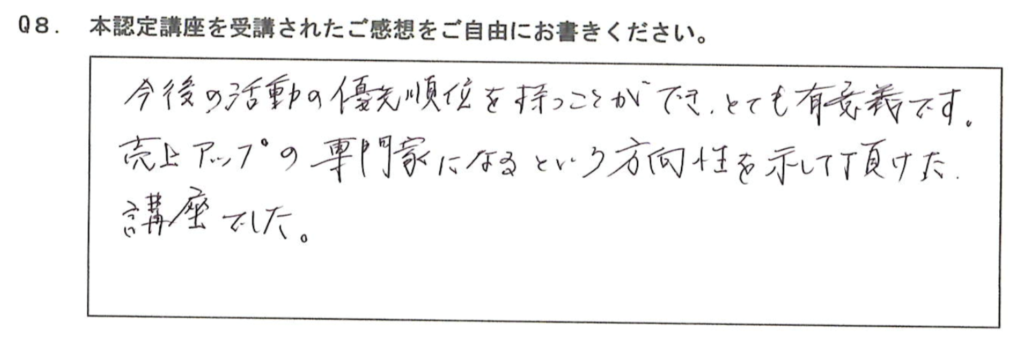 Q8. 本認定講座を受講されたご感想をご自由にお書きください。
今後の活動の優先順位を持つことができ、とても有意義です。
売上アップの専門家になるという方向性を示して頂けた
講座でした。